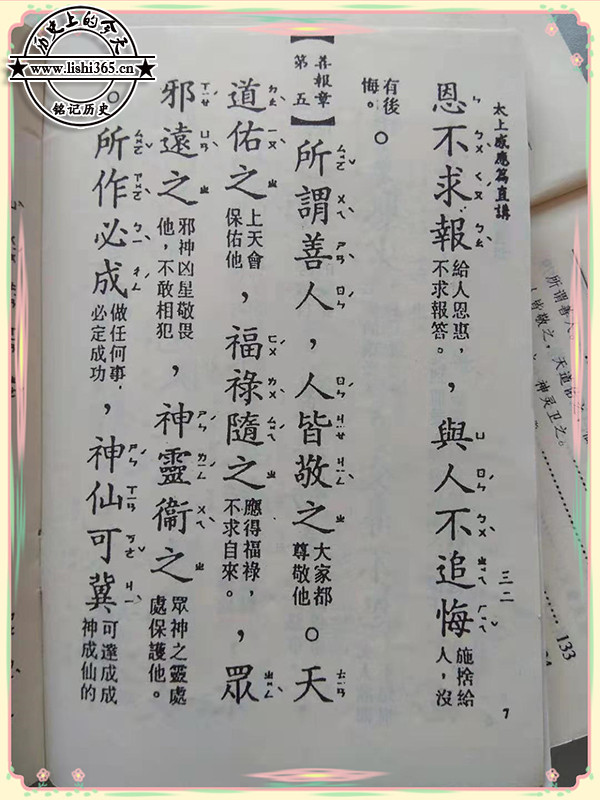 历史上的今天
www.lishi365.cn
铭记历史
太上感應篇直講
三二
7
恩不求報給人恩惠，不求報答。，與人不追悔施捨給人，沒
有後悔。○
【善報章第五】所謂善人，人皆敬之大家都尊敬他。天
道佑之上天會保佑他，福祿隨之應得福祿，不求自來。，眾
邪遠之邪神凶星敬畏他，不敢相犯，神靈衛之眾神之靈處處保護他。
。所作必成做任何事，必定成功，神仙可冀可達成成神成仙的
所謂善人。
人皆敬之，天道佑之，
神灵卫之。
133